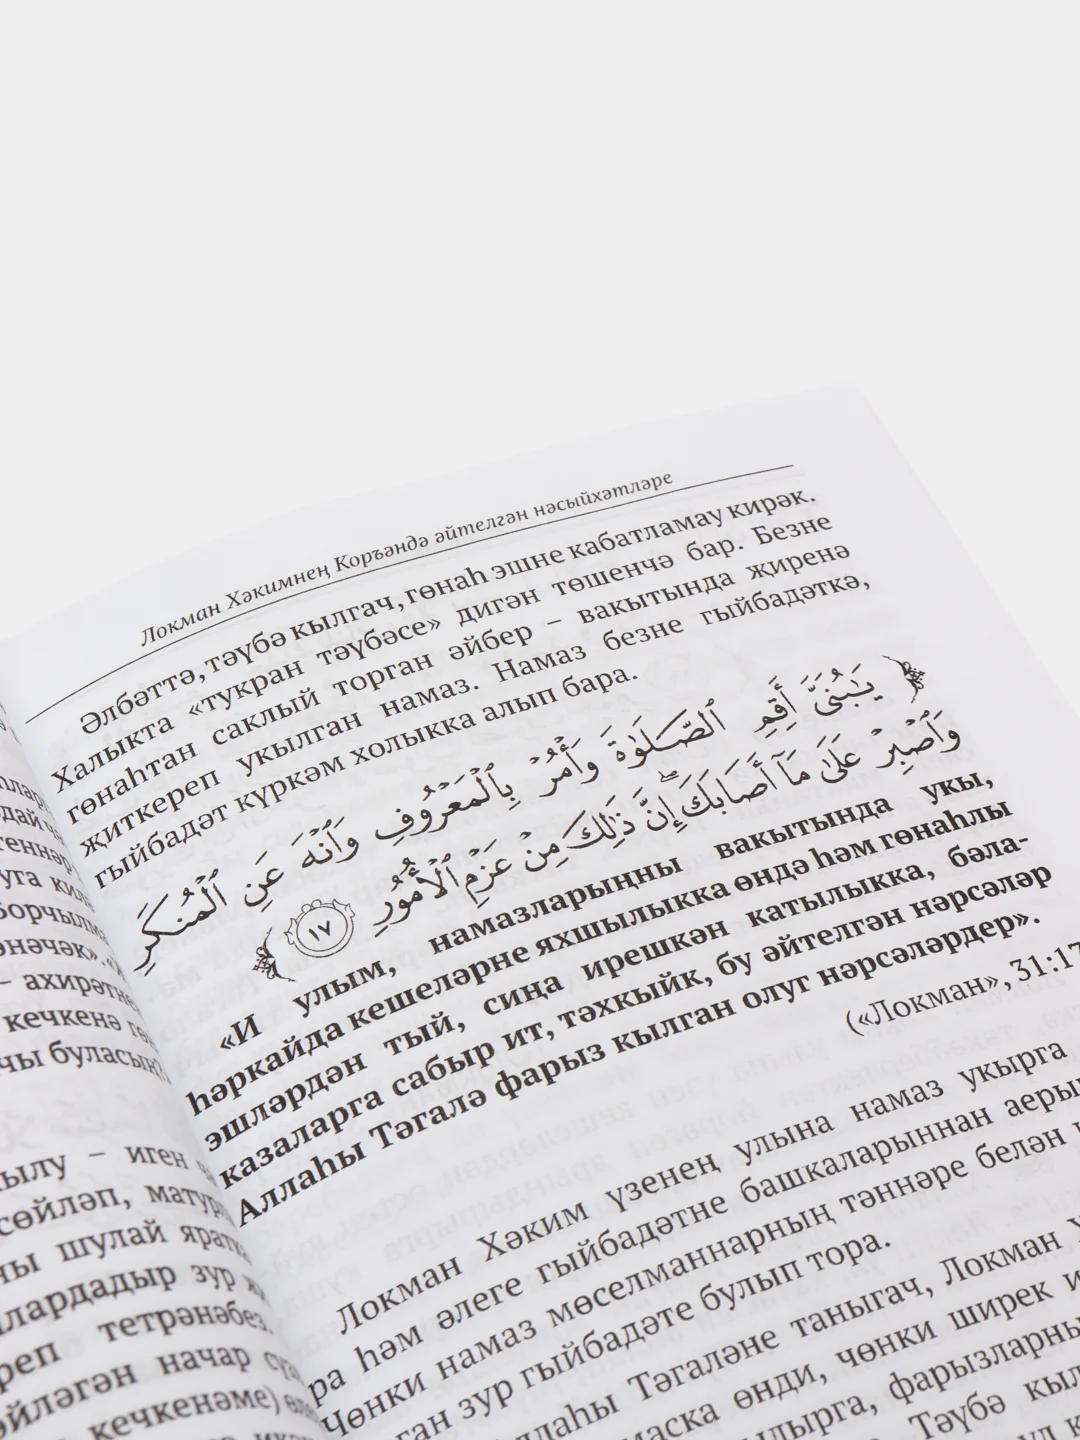 Локман Хәкимнең Коръәндә әйтелгән нәсыйхәтләре
Әлбәттә, тәүбә кылгач, гөнаһ эшне кабатламау кирәк.
Халыкта «тукран тәүбәсе» дигән төшенчә бар. Безне
гөнаһтан саклый торган әйбер – вакытында җиренә
җиткереп укылган намаз. Намаз безне гыйбадәткә,
гыйбадәт күркәм холыкка алып бара.
يَـٰبُنَىَّ أَقِمِ ٱلصَّلَوٰةَ وَأْمُرْ بِٱلْمَعْرُوفِ وَٱنْهَ عَنِ ٱلْمُنكَرِ
وَٱصْبِرْ عَلَىٰ مَآ أَصَابَكَ ۖ إِنَّ ذَٰلِكَ مِنْ عَزْمِ ٱلْأُمُورِ ١٧
«И улым, намазларыңны вакытында укы,
һәркайда кешеләрне яхшылыкка өндә һәм гөнаһлы
эшләрдән тый, сиңа ирешкән катылыкка, бәла-
казаларга сабыр ит, тәхкыйк, бу әйтелгән нәрсәләр
Аллаһы Тәгалә фарыз кылган олуг нәрсәләрдер».
(«Локман», 31:17
Локман Хәким үзенең улына намаз укырга
ра һәм әлеге гыйбадәтне башкаларыннан аеры
Чөнки намаз мөселманнарның тәннәре белән
ган зур гыйбадәте булып тора.
ллаһы Тәгаләне таныгач, Локман
маска өнди, чөнки ширек
лырга, фарызларны
Тәүбә кыл
– ахирәтне
кечкенә
чы буласың
ылу – иген
сөйләп, матур
ны шулай ярат
ллардадыр зур
реп тетрәнәбез.
әйләгән начар сүз
кечкенәме)